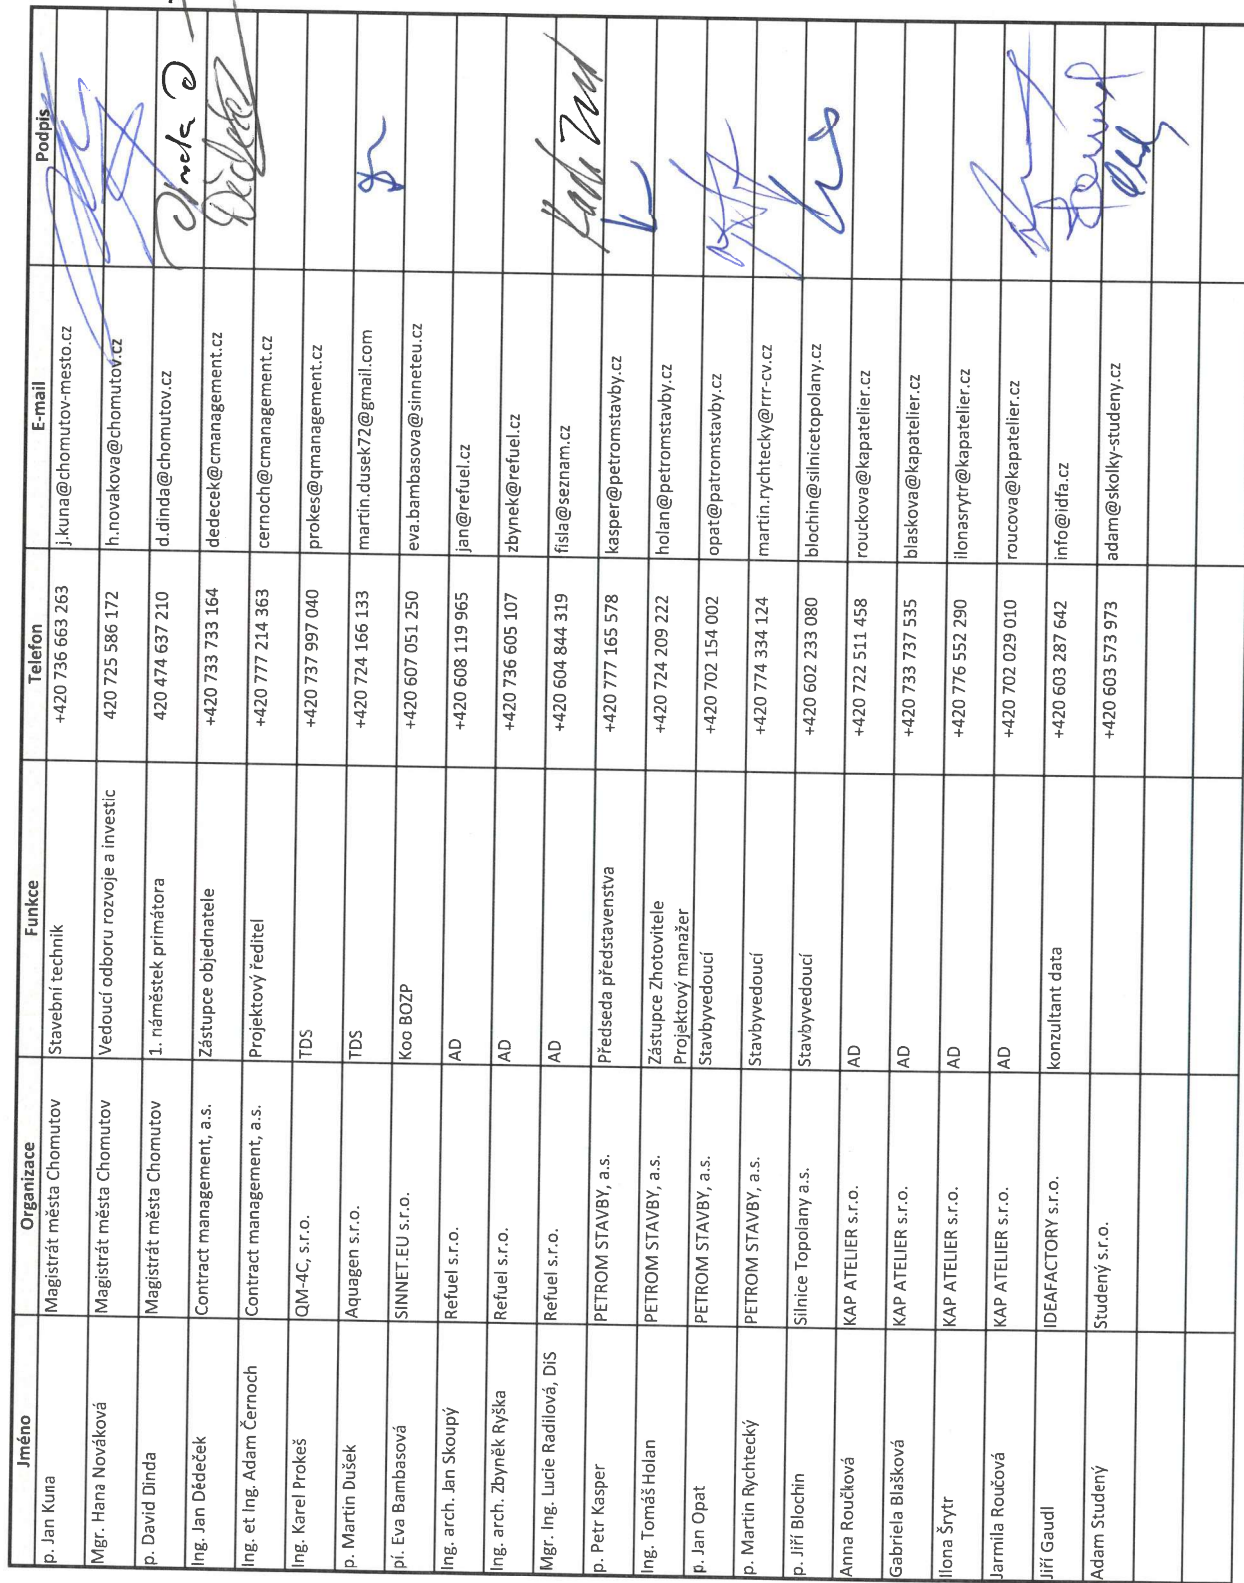 Jméno Organizace Funkce Telefon E-mail Podpis
p. Jan Kuna Magistrát města Chomutov Stavební technik +420 736 663 263 j.kuna@chomutov-mesto.cz
Mgr. Hana Nováková Magistrát města Chomutov Vedoucí odboru rozvoje a investic 420 725 586 172 h.novakova@chomutov.cz
p. David Dinda Magistrát města Chomutov 1. náměstek primátora 420 474 637 210 d.dinda@chomutov.cz
Ing. Jan Dědeček Contract management, a.s. Zástupce objednatele +420 733 733 164 dedecek@cmanagement.cz Dědeček
Ing. et Ing. Adam Černoch Contract management, a.s. Projektový ředitel +420 777 214 363 cernoch@cmanagement.cz
Ing. Karel Prokeš QM-4C, s.r.o. TDS +420 737 997 040 prokes@qmanagement.cz
p. Martin Dušek Aquagen s.r.o. TDS +420 724 166 133 martin.dusek72@gmail.com
pí. Eva Bambasová SINNET.EU s.r.o. Koo BOZP +420 607 051 250 eva.bambasova@sinneteu.cz
Ing. arch. Jan Skoupý Refuel s.r.o. AD +420 608 119 965 jan@refuel.cz
Ing. arch. Zbyněk Ryška Refuel s.r.o. AD +420 736 605 107 zbynek@refuel.cz
Mgr. Ing. Lucie Radilová, DiS Refuel s.r.o. AD +420 604 844 319 fisla@seznam.cz
p. Petr Kasper PETROM STAVBY, a.s. Předseda představenstva +420 777 165 578 kasper@petromstavby.cz
Ing. Tomáš Holan PETROM STAVBY, a.s. Zástupce Zhotovitele +420 724 209 222 holan@petromstavby.cz
Projektový manažer
p. Jan Opat PETROM STAVBY, a.s. Stavbyvedoucí +420 702 154 002 opat@patromstavby.cz
p. Martin Rychtecký PETROM STAVBY, a.s. Stavbyvedoucí +420 774 334 124 martin.rychtecky@rrr-cv.cz
p. Jiří Blochin Silnice Topolany a.s. Stavbyvedoucí +420 602 233 080 blochin@silnicetopolany.cz
Anna Roučková KAP ATELIER s.r.o. AD +420 722 511 458 rouckova@kapatelier.cz
Gabriela Blašková KAP ATELIER s.r.o. AD +420 733 737 535 blaskova@kapatelier.cz
Ilona Šrytr KAP ATELIER s.r.o. AD +420 776 552 290 ilonasrytr@kapatelier.cz
Jarmila Roučová KAP ATELIER s.r.o. AD +420 702 029 010 roucova@kapatelier.cz
Jiří Gaudl IDEAFACTORY s.r.o. konzultant data +420 603 287 642 info@idfa.cz
Adam Studený Studený s.r.o. +420 603 573 973 adam@skolky-studeny.cz